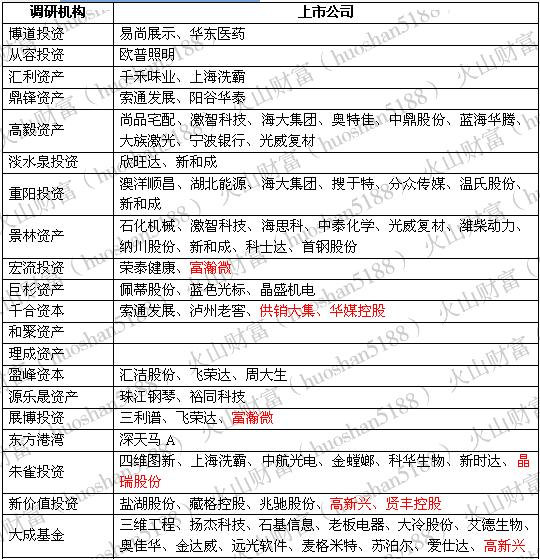 调研机构 上市公司
博道投资 易尚展示、华东医药
从容投资 欧普照明
汇利资产 千禾味业、上海洗霸
鼎锋资产 索通发展、阳谷华泰
高毅资产 尚品宅配、激智科技、海大集团、奥特佳、中鼎股份、蓝海华腾、
大族激光、宁波银行、光威复材
淡水泉投资 欣旺达、新和成
重阳投资 澳洋顺昌、湖北能源、海大集团、搜于特、分众传媒、温氏股份、
新和成
景林资产 石化机械、激智科技、海思科、中泰化学、光威复材、潍柴动力、
纳川股份、新和成、科士达、首钢股份
宏流投资 荣泰健康、富瀚微
巨杉资产 佩蒂股份、蓝色光标、晶盛机电
千合资本 索通发展、泸州老窖、供销大集、华媒控股
和聚资产
理成资产
盈峰资本 汇洁股份、飞荣达、周大生
源乐晟资产 珠江钢琴、裕同科技
展博投资 三利谱、飞荣达、富瀚微
东方港湾 深天马 A
朱雀投资 四维图新、上海洗霸、中航光电、金螳螂、科华生物、新时达、晶
瑞股份
新价值投资 盐湖股份、藏格控股、兆驰股份、高新兴、贤丰控股
大成基金 三维工程、扬杰科技、石基信息、老板电器、大冷股份、艾德生物、
奥佳华、金达威、远光软件、麦格米特、苏泊尔、爱仕达、高新兴
火山财富（huoshan5188）